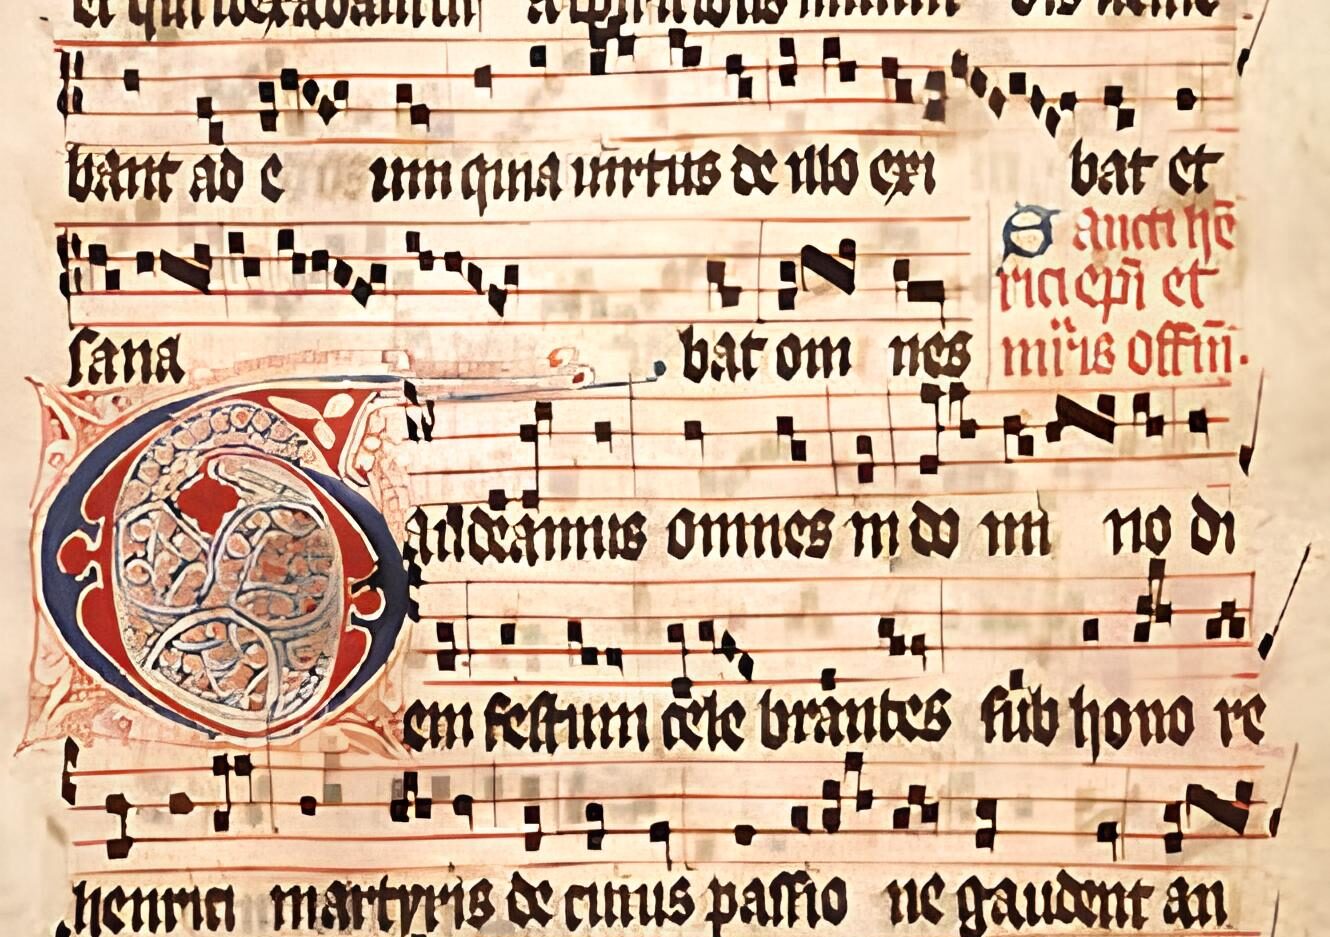 bant ad e um quia uirtus de illo exi bat et
Sancti hē
rici epī et
mr̄is offm̄.
sana bat om nes
Gaudeamus omnes in do mi no di
em festum cele brantes sub hono re
henrici martyris de cuius passio ne gaudent an